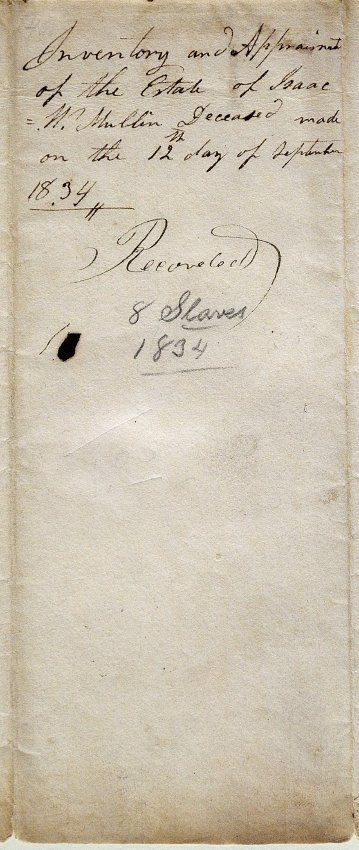 Inventory and Appraisment
of the Estate of Isaac
=Mc Mullin Deceased made
on the 12th day of September
1834
Recorded
8 Slaves
1834